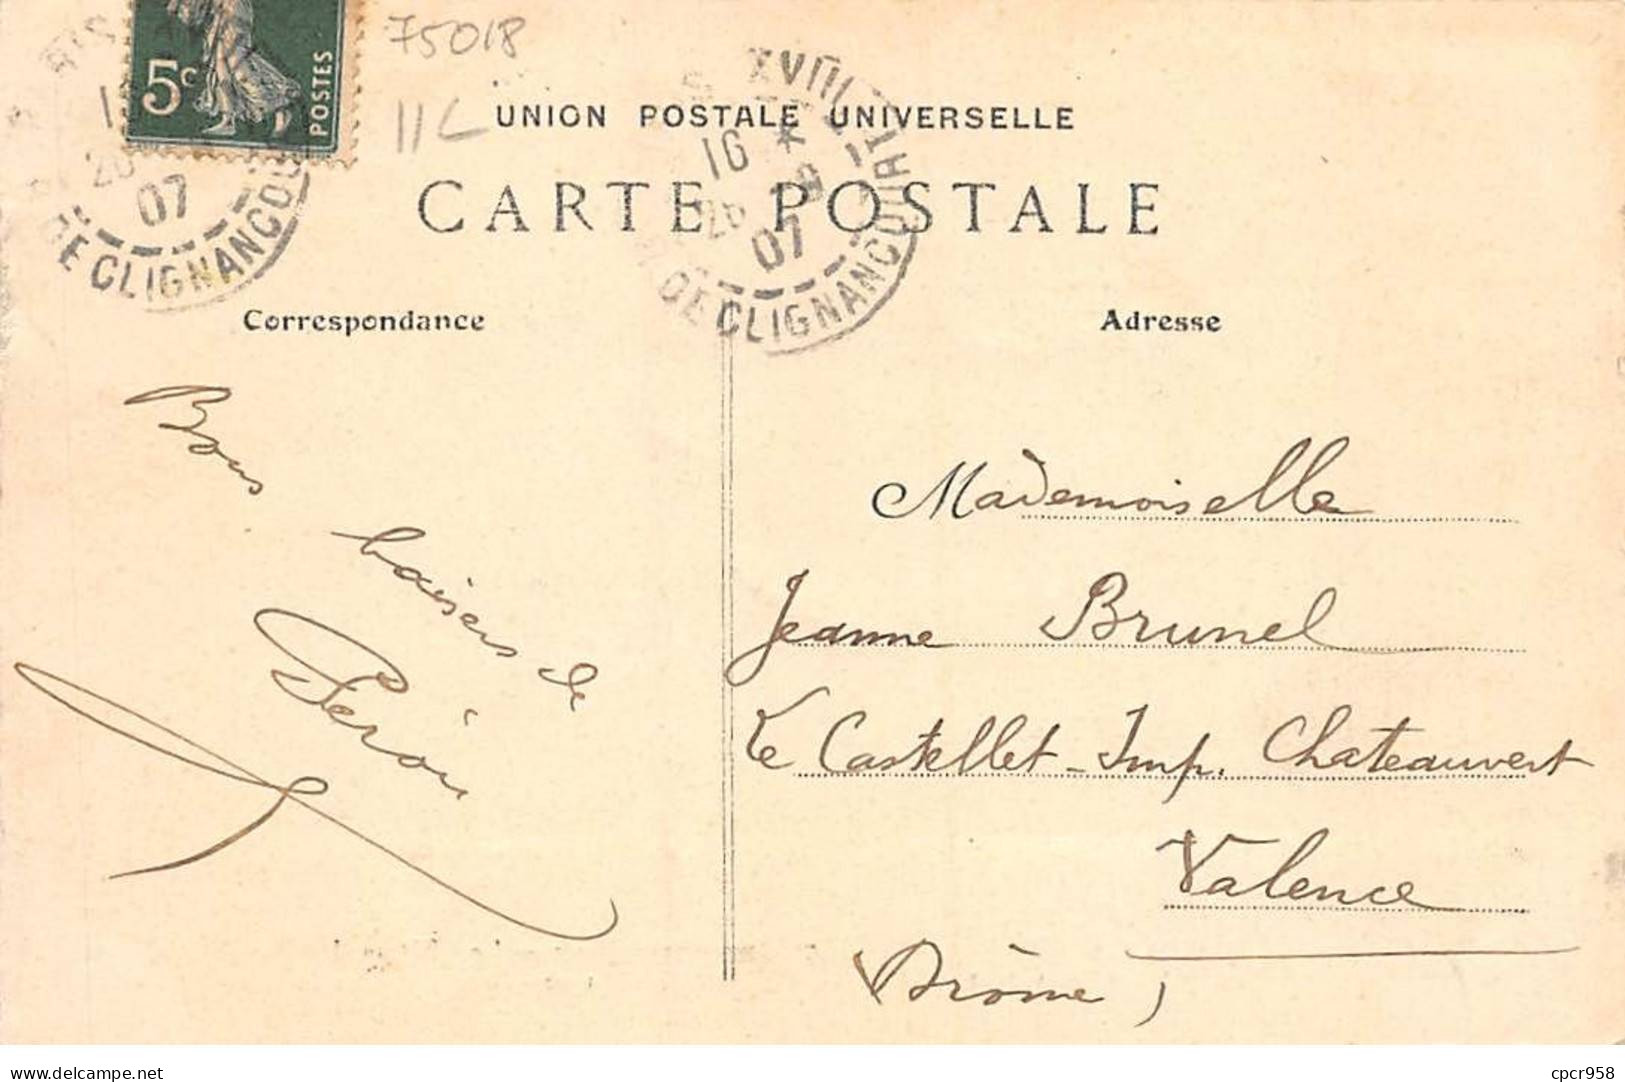 75018
11L
5c
POSTES
16
07
DE CLIGNANCOU
XVIII
16 *
07
DE CLIGNANCOURT
UNION POSTALE UNIVERSELLE
CARTE POSTALE
Correspondance
Adresse
Bons
baisers de
Mademoiselle
Jeanne Brunel
Le Castellet - Imp. Chateauvert
Valence
(Drôme)
www.delcampe.net
cpcr958